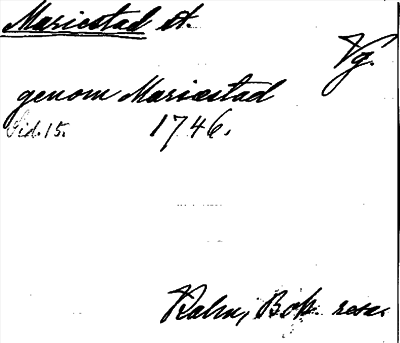 Mariestad st.
Vg.
genom Mariæstad
Sid. 15. 1746.
Kalm, Boh. resa.